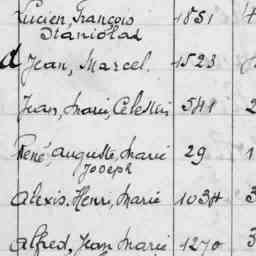 Lucien, François 1851 4
Staniolad
d Jean, Marcel. 1523
Jean, Marie, Célestin 541 2
René, Auguste, Marie 29 1
Joseph
Alexis. Henri, Marie 1034 3
Alfred, Jean Marie 1270 3